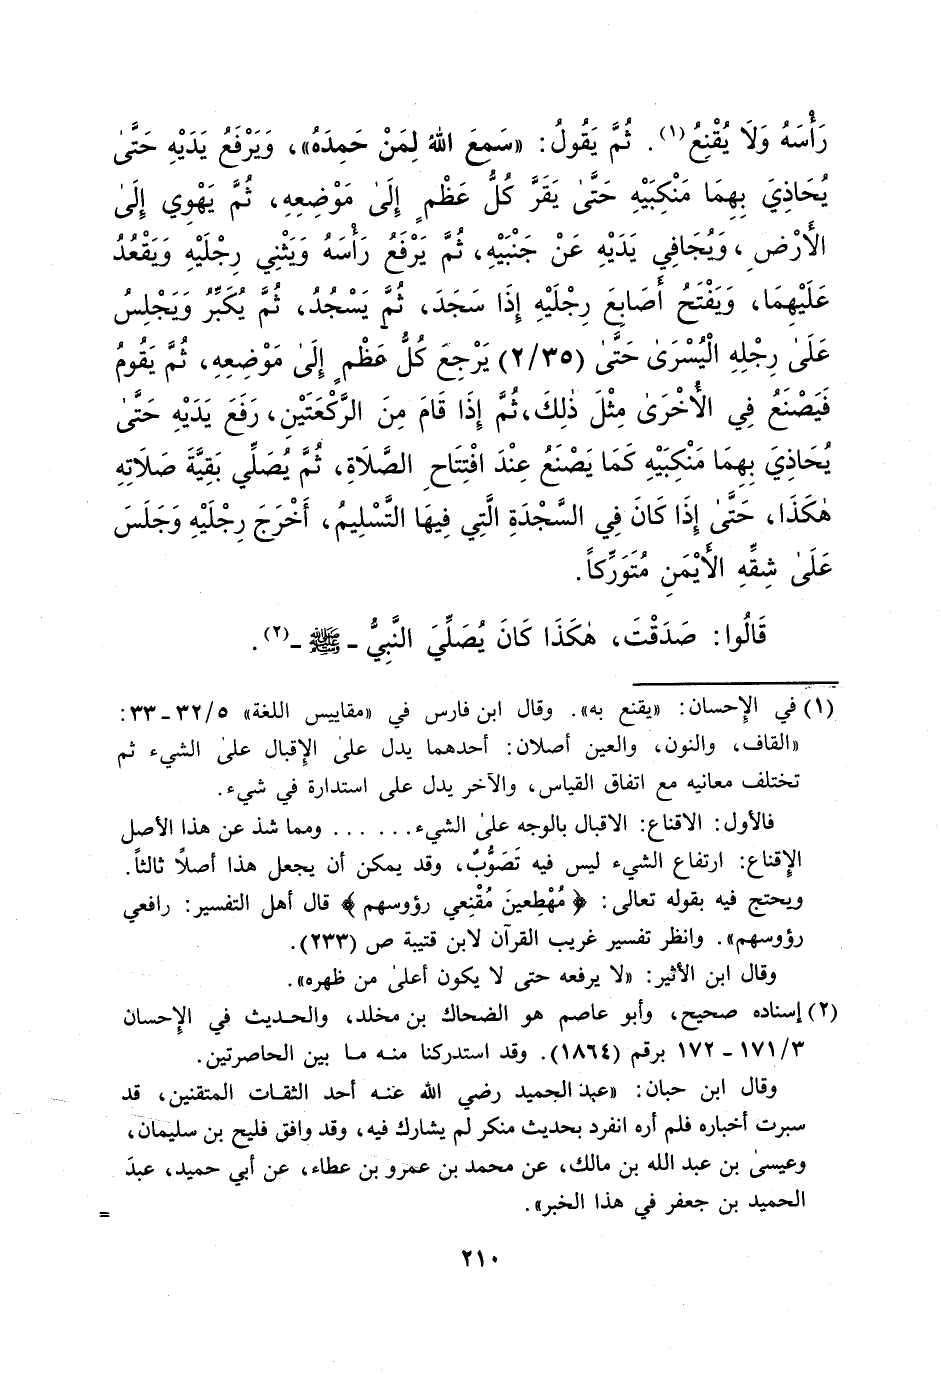 رَأْسَهُ وَلَا يُقْنِعُ(١). ثُمَّ يَقُولُ: «سَمِعَ اللهُ لِمَنْ حَمِدَهُ»، وَيَرْفَعُ يَدَيْهِ حَتَّىٰ
يُحَاذِيَ بِهِمَا مَنْكِبَيْهِ حَتَّىٰ يَقَرَّ كُلُّ عَظْمٍ إِلَىٰ مَوْضِعِهِ، ثُمَّ يَهْوِي إِلَىٰ
الأَرْضِ، وَيُجَافِي يَدَيْهِ عَنْ جَنْبَيْهِ، ثُمَّ يَرْفَعُ رَأْسَهُ وَيَثْنِي رِجْلَيْهِ وَيَقْعُدُ
عَلَيْهِمَا، وَيَفْتَحُ أَصَابِعَ رِجْلَيْهِ إِذَا سَجَدَ، ثُمَّ يَسْجُدُ، ثُمَّ يُكَبِّرُ وَيَجْلِسُ
عَلَىٰ رِجْلِهِ الْيُسْرَىٰ حَتَّىٰ (٢/٣٥) يَرْجِعَ كُلُّ عَظْمٍ إِلَىٰ مَوْضِعِهِ، ثُمَّ يَقُومُ
فَيَصْنَعُ فِي الأُخْرَىٰ مِثْلَ ذٰلِكَ، ثُمَّ إِذَا قَامَ مِنَ الرَّكْعَتَيْنِ، رَفَعَ يَدَيْهِ حَتَّىٰ
يُحَاذِيَ بِهِمَا مَنْكِبَيْهِ كَمَا يَصْنَعُ عِنْدَ افْتِتَاحِ الصَّلَاةِ، ثُمَّ يُصَلِّي بَقِيَّةَ صَلَاتِهِ
هٰكَذَا، حَتَّىٰ إِذَا كَانَ فِي السَّجْدَةِ الَّتِي فِيهَا التَّسْلِيمُ، أَخْرَجَ رِجْلَيْهِ وَجَلَسَ
عَلَىٰ شِقِّهِ الأَيْمَنِ مُتَوَرِّكاً.
قَالُوا: صَدَقْتَ، هٰكَذَا كَانَ يُصَلِّيَ النَّبِيُّ - ﷺ -(٢).
(١) في الإحسان: «يقنع به». وقال ابن فارس في «مقاييس اللغة» ٣٢/٥ - ٣٣:
«القاف، والنون، والعين أصلان: أحدهما يدل علىٰ الإقبال علىٰ الشيء ثم
تختلف معانيه مع اتفاق القياس، والآخر يدل على استدارة في شيء.
فالأول: الاقناع: الاقبال بالوجه علىٰ الشيء...... ومما شذ عن هذا الأصل
الإقناع: ارتفاع الشيء ليس فيه تَصَوُّبٌ، وقد يمكن أن يجعل هذا أصلاً ثالثاً.
ويحتج فيه بقوله تعالى: ﴿ مُهْطِعينَ مُقْنِعي رؤوسهم ﴾ قال أهل التفسير: رافعي
رؤوسهم». وانظر تفسير غريب القرآن لابن قتيبة ص (٢٣٣).
وقال ابن الأثير: «لا يرفعه حتى لا يكون أعلىٰ من ظهره».
(٢) إسناده صحيح، وأبو عاصم هو الضحاك بن مخلد، والحديث في الإحسان
١٧١/٣ - ١٧٢ برقم (١٨٦٤). وقد استدركنا منه ما بين الحاصرتين.
وقال ابن حبان: «عبد الحميد رضي الله عنه أحد الثقات المتقنين، قد
سبرت أخباره فلم أره انفرد بحديث منكر لم يشارك فيه، وقد وافق فليح بن سليمان،
وعيسىٰ بن عبد الله بن مالك، عن محمد بن عمرو بن عطاء، عن أبي حميد، عبدَ
الحميد بن جعفر في هذا الخبر».
=
٢١٠